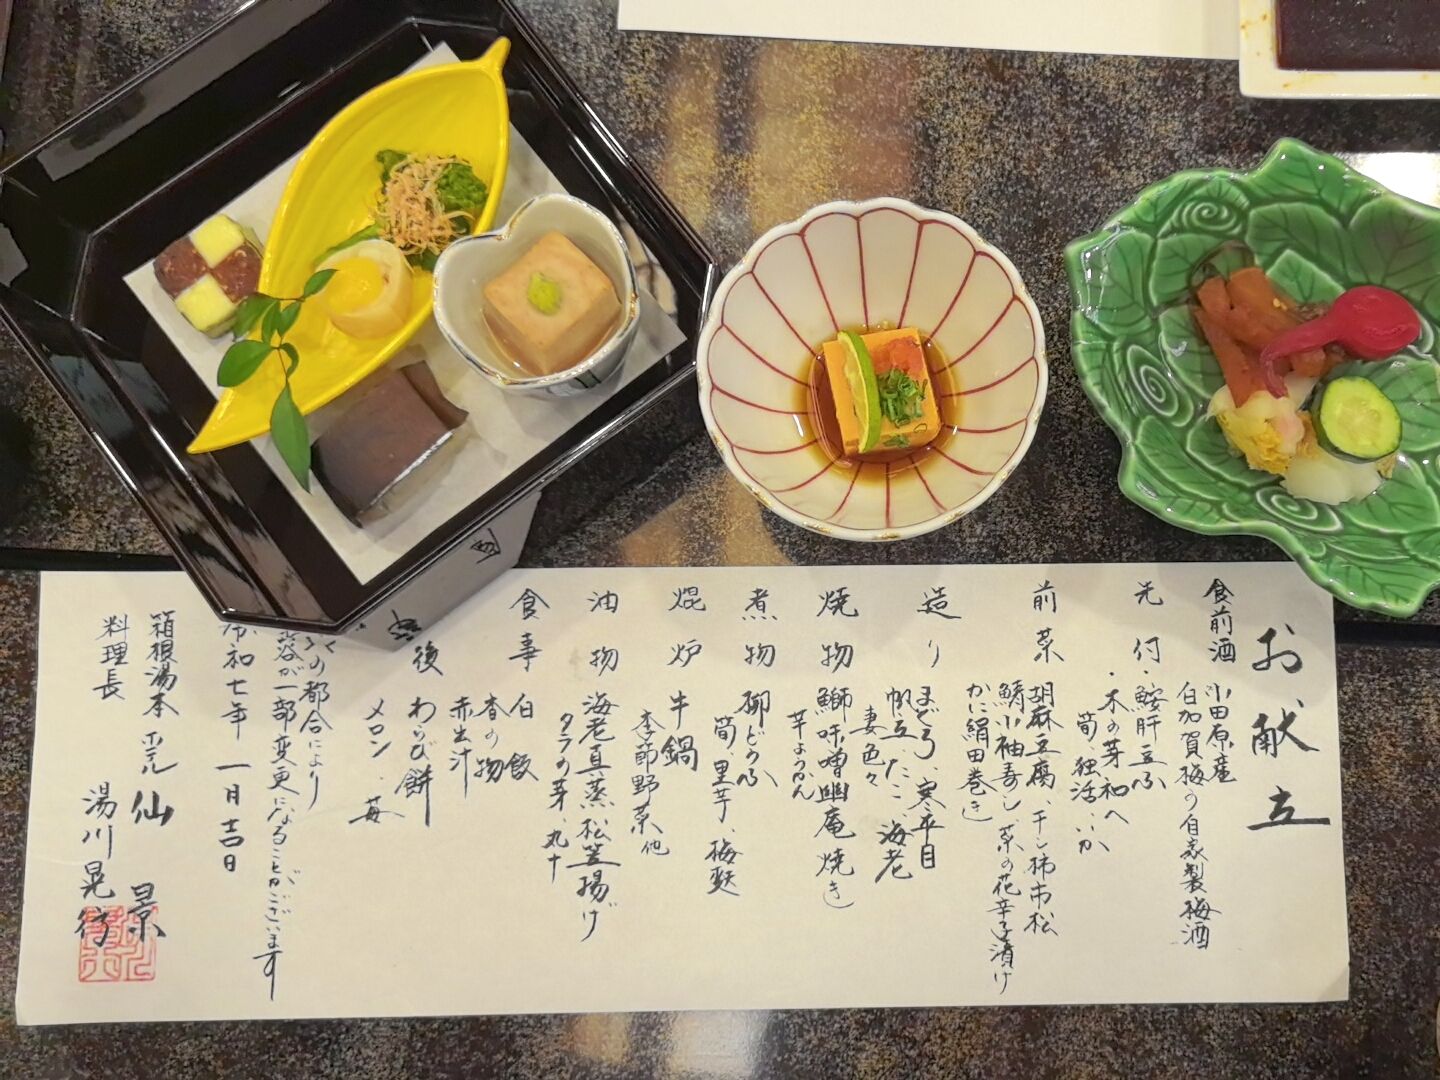 お献立
食前酒 小田原産
白加賀梅の自家製梅酒
先付 ・鮟肝豆ふ
・木の芽和へ
筍、独活、いか
前菜 胡麻豆腐、干し柿市松
鯖小袖寿し、菜の花辛子漬け
かに絹田巻き
造り まぐろ、寒平目
帆立、たこ、海老
妻色々
焼物 鰤味噌幽庵焼き
芋ようかん
煮物 柳どうふ
筍、里芋、梅麩
焜炉 牛鍋
季節野菜他
油物 海老真蒸松笠揚げ
タラの芽、丸十
食事 白飯
香の物
赤出汁
後 わらび餅
メロン、苺
の都合により
容が一部変更になることがございます
令和七年 一月吉日
箱根湯本ホテル 仙景
料理長 湯川晃